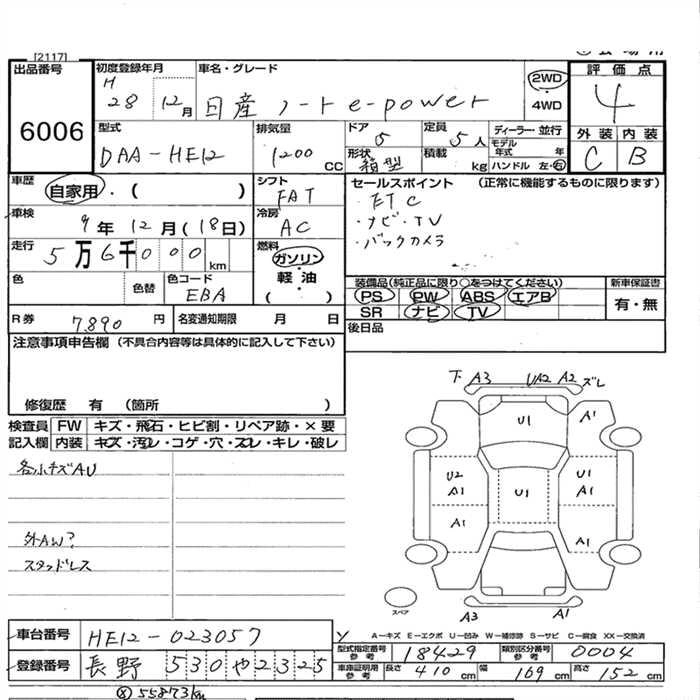 [2117]
出品番号
6006
初度登録年月
H 28年 12月
車名・グレード
日産 ノート e-power
2WD
・
4WD
評価点
4
外装 内装
C B
型式
DAA-HE12
排気量
1200 CC
ドア
5
形状
箱型
定員
5人
積載
kg
ディーラー・並行
モデル年式 年
ハンドル 左・右
車歴
自家用 ・ ( )
シフト
FAT
セールスポイント (正常に機能するものに限ります)
・ETC
・ナビ・TV
・バックカメラ
車検
9年 12月 (18日)
冷房
AC
走行
5万6千000km
燃料
ガソリン
・
軽油
・
( )
色
色替
色コード
EBA
装備品(純正品に限り○をつけてください)
PS PW ABS エアB
SR ナビ TV
新車保証書
有・無
R券
7,890 円
名変通知期限 月 日
後日品
注意事項申告欄 (不具合内容等は具体的に記入して下さい)
修復歴 有 (箇所 )
検査員記入欄
FW キズ・飛石・ヒビ割・リペア跡・×要
内装 キズ・汚レ・コゲ・穴・スレ・キレ・破レ
各小キズAU
外AW?
スタッドレス
下 A3 UA2 A2 ズレ
U1 A1
U2 A1 U1 A1
A1 A1
スペア
A3 A1
A-キズ E-エクボ U-凹み W-補修跡 S-サビ C-腐食 XX-交換済
車台番号
HE12-023057
登録番号
長野 530 や 2325
型式指定番号 参考
18429
類別区分番号 参考
0004
車庫証明用 参考
長さ 410 cm 幅 169 cm 高さ 152 cm
55873km